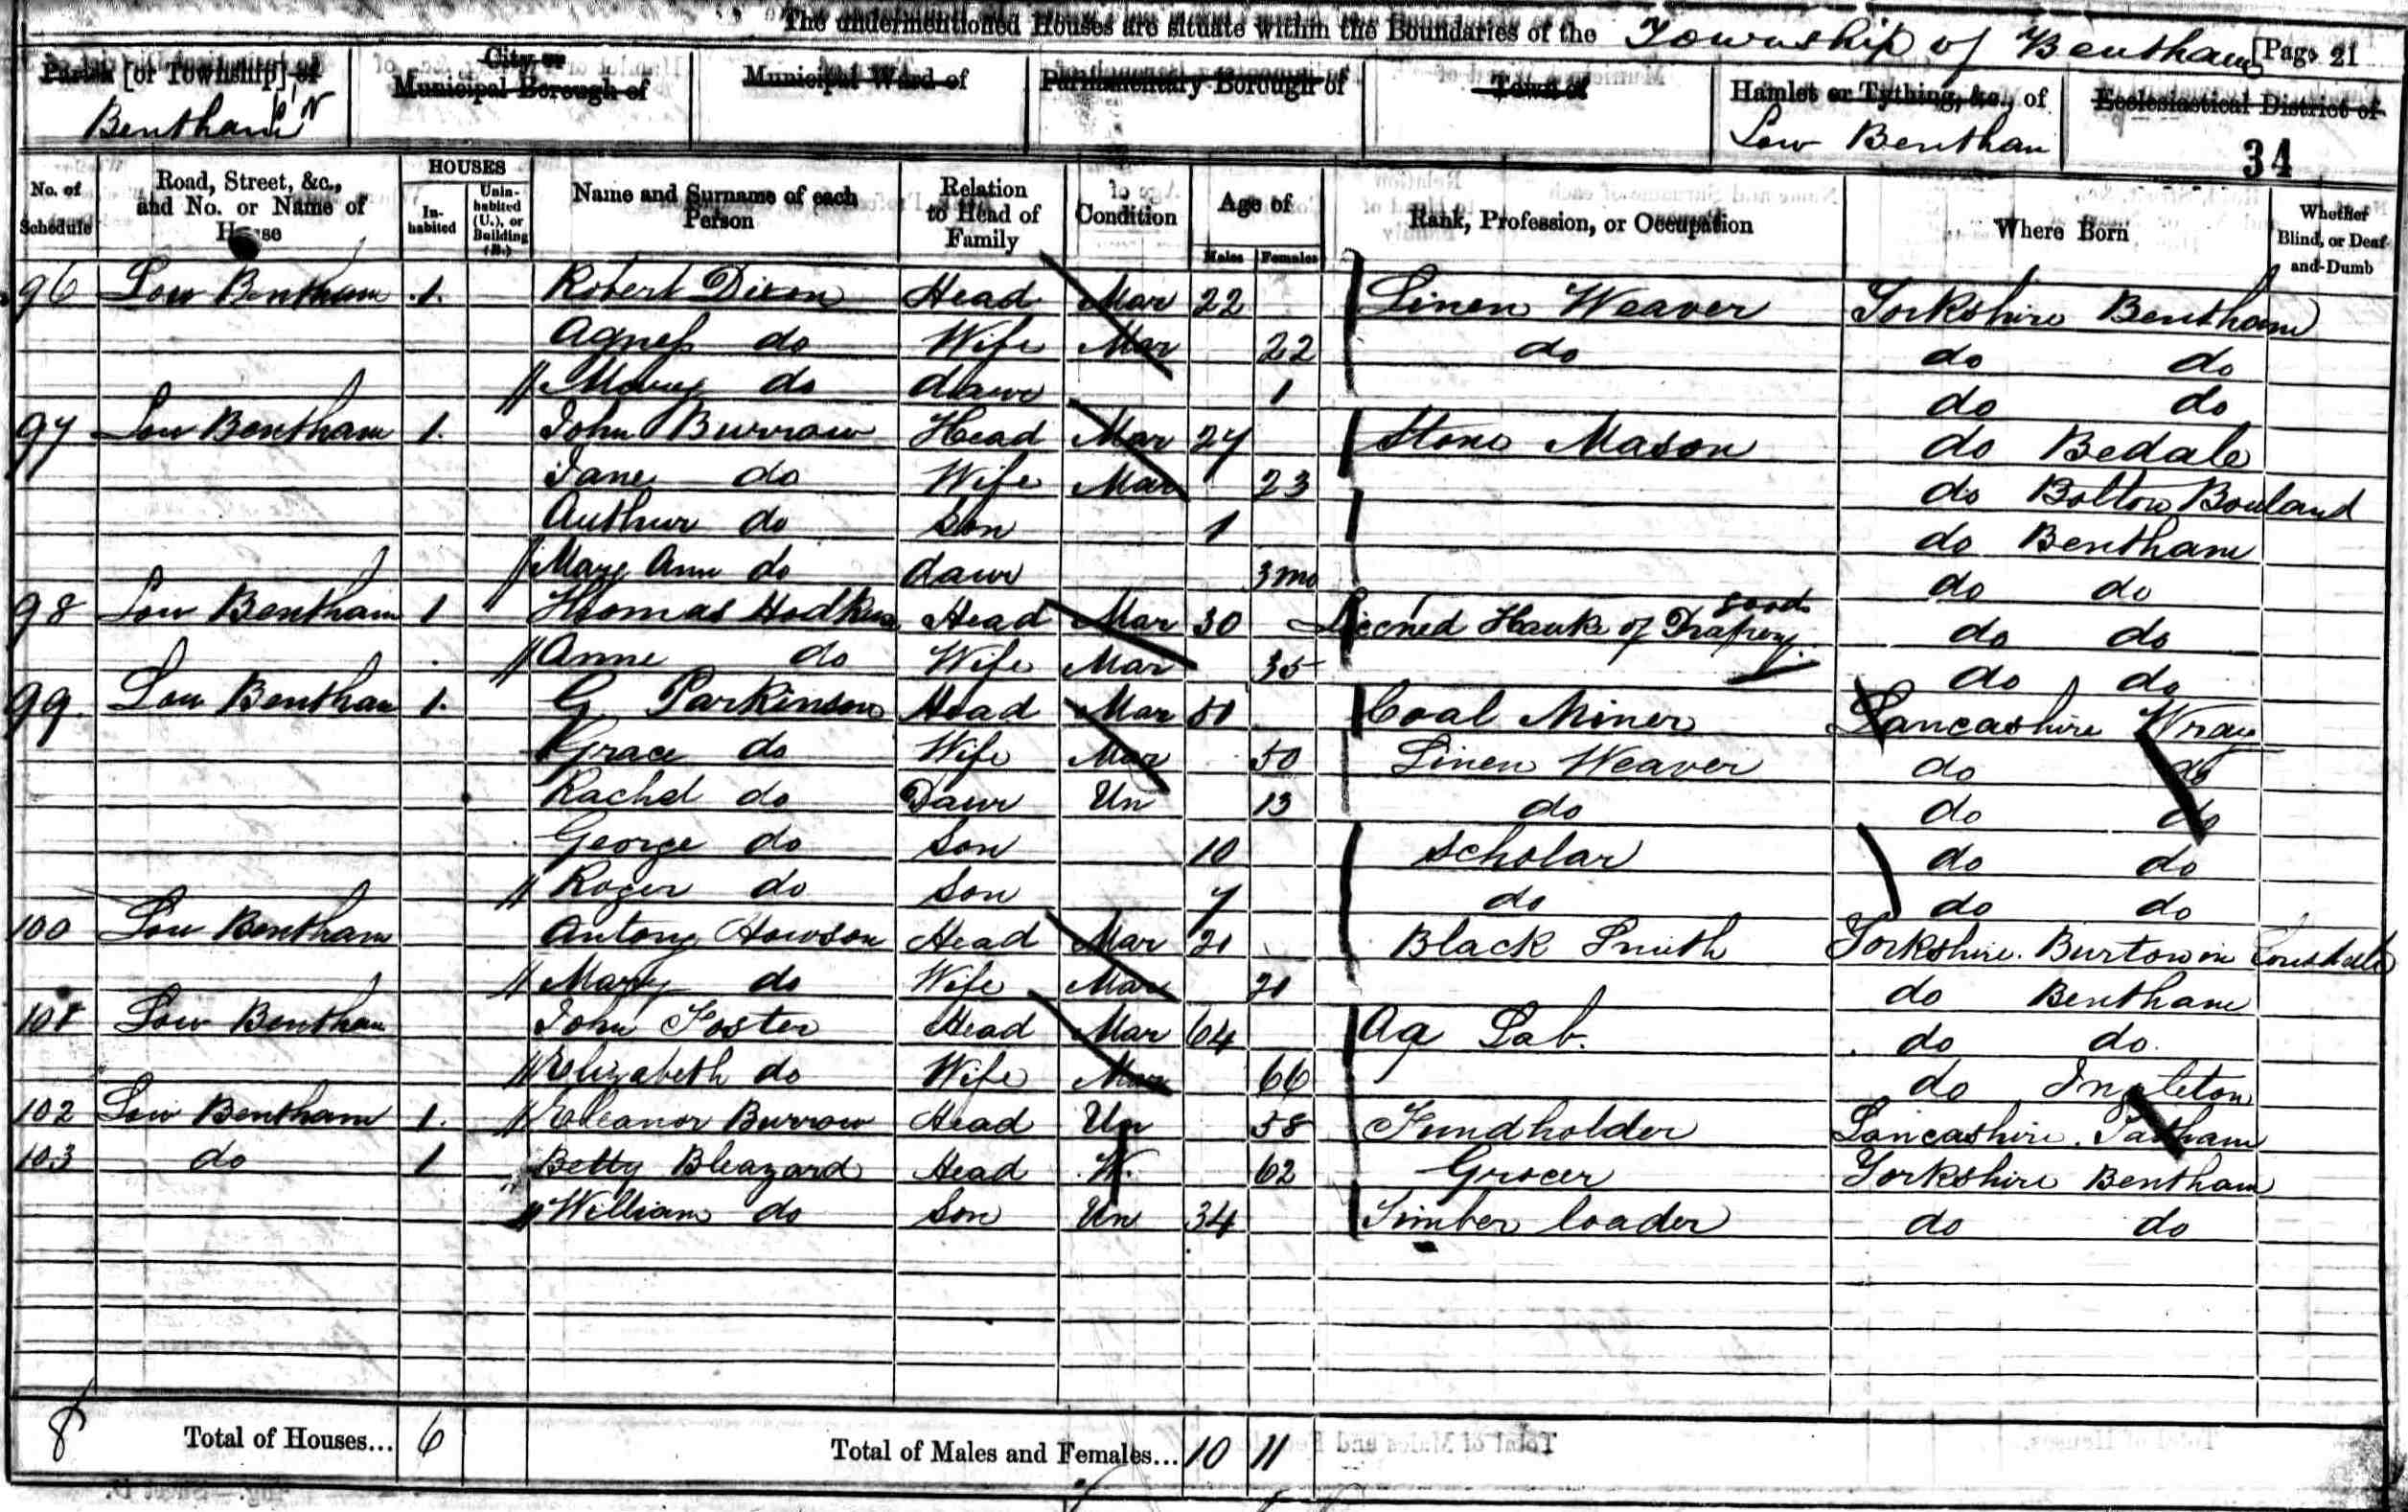 The undermentioned Houses are situate within the Boundaries of the Township of Bentham [Page 21
Parish [or Township] of Bentham
City or Municipal Borough of
Municipal Ward of
Parliamentary Borough of
Town of
Hamlet or Tything, &c., of Low Bentham
Ecclesiastical District of
34
No. of Schedule
Road, Street, &c., and No. or Name of House
HOUSES
In-habited
Unin-habited (U.), or Building (B.)
Name and Surname of each Person
Relation to Head of Family
Condition
Age of
Males
Females
Rank, Profession, or Occupation
Where Born
Whether Blind, or Deaf-and-Dumb
96 Low Bentham 1 Robert Dixon Head Mar 22 Linen Weaver Yorkshire Bentham
Agness do Wife Mar 22 do do do
Mary do dawr 1 do do
97 Low Bentham 1 John Burrow Head Mar 27 Stone Mason do Bedale
Jane do Wife Mar 23 do Bolton Bowland
Authur do Son 1 do Bentham
Mary Ann do dawr 3mo do do
98 Low Bentham 1 Thomas Head Mar 30 Hawk of Drapery goods do do
Anne do Wife Mar 35 do do
99 Low Bentham 1 G Parkinson Head Mar 51 Coal Miner Lancashire Wray
Grace do Wife Mar 50 Linen Weaver do do
Rachel do Dawr Un 13 do do do
George do Son 10 Scholar do do
Roger do Son 7 do do do
100 Low Bentham Antony Howson Head Mar 21 Black Smith Yorkshire Burton in Lonsdale
Mary do Wife Mar 21 do Bentham
101 Low Bentham John Foster Head Mar 64 Ag Lab. do do
Elizabeth do Wife Mar 66 do Ingleton
102 Low Bentham 1 Eleanor Burrow Head Un 58 Fundholder Lancashire Tatham
103 do 1 Betty Bleazard Head W. 62 Grocer Yorkshire Bentham
William do Son Un 34 Timber loader do do
8 Total of Houses... 6 Total of Males and Females... 10 11